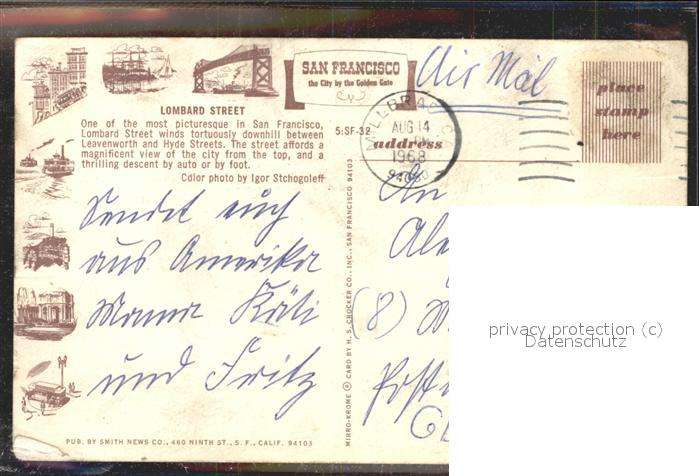 SAN FRANCISCO
the City by the Golden Gate
Air Mail
LOMBARD STREET
One of the most picturesque in San Francisco,
Lombard Street winds tortuously downhill between
Leavenworth and Hyde Streets. The street affords a
magnificent view of the city from the top, and a
thrilling descent by auto or by foot.
Color photo by Igor Stchogoleff
5:SF-32
MILLBRAE
AUG 14
PM
1968
94030
address
place
stamp
here
Sendet euch
aus Amerika
Mama Käti
und Fritz
MIRRO-KROME ® CARD BY H. S. CROCKER CO., INC., SAN FRANCISCO 94103
An
(8)
PUB. BY SMITH NEWS CO., 460 NINTH ST., S. F., CALIF. 94103
privacy protection (c)
Datenschutz